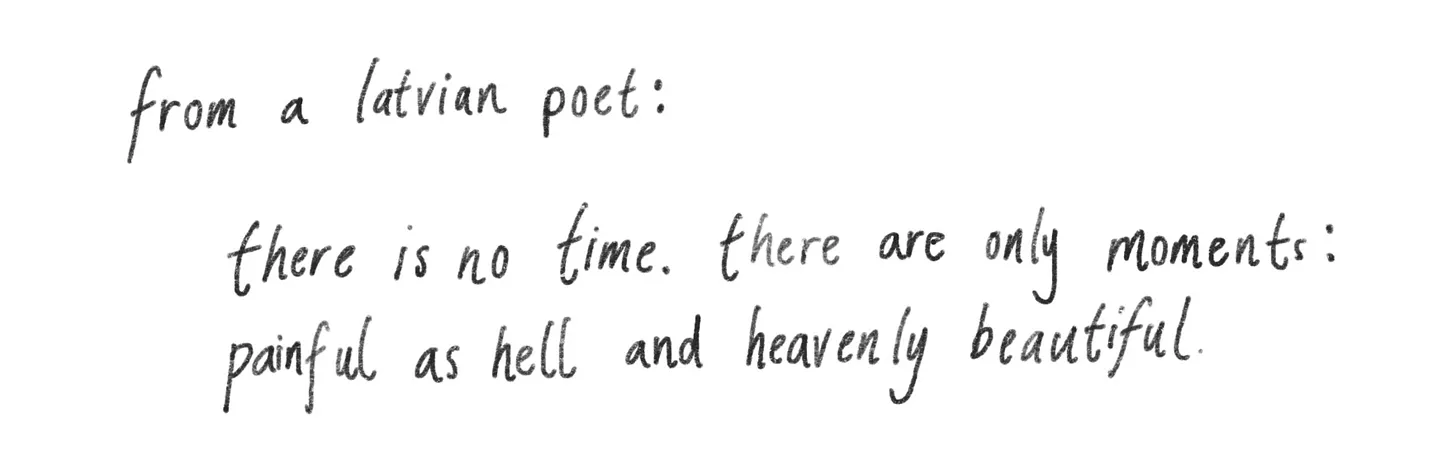 from a latvian poet:
there is no time. there are only moments:
painful as hell and heavenly beautiful.